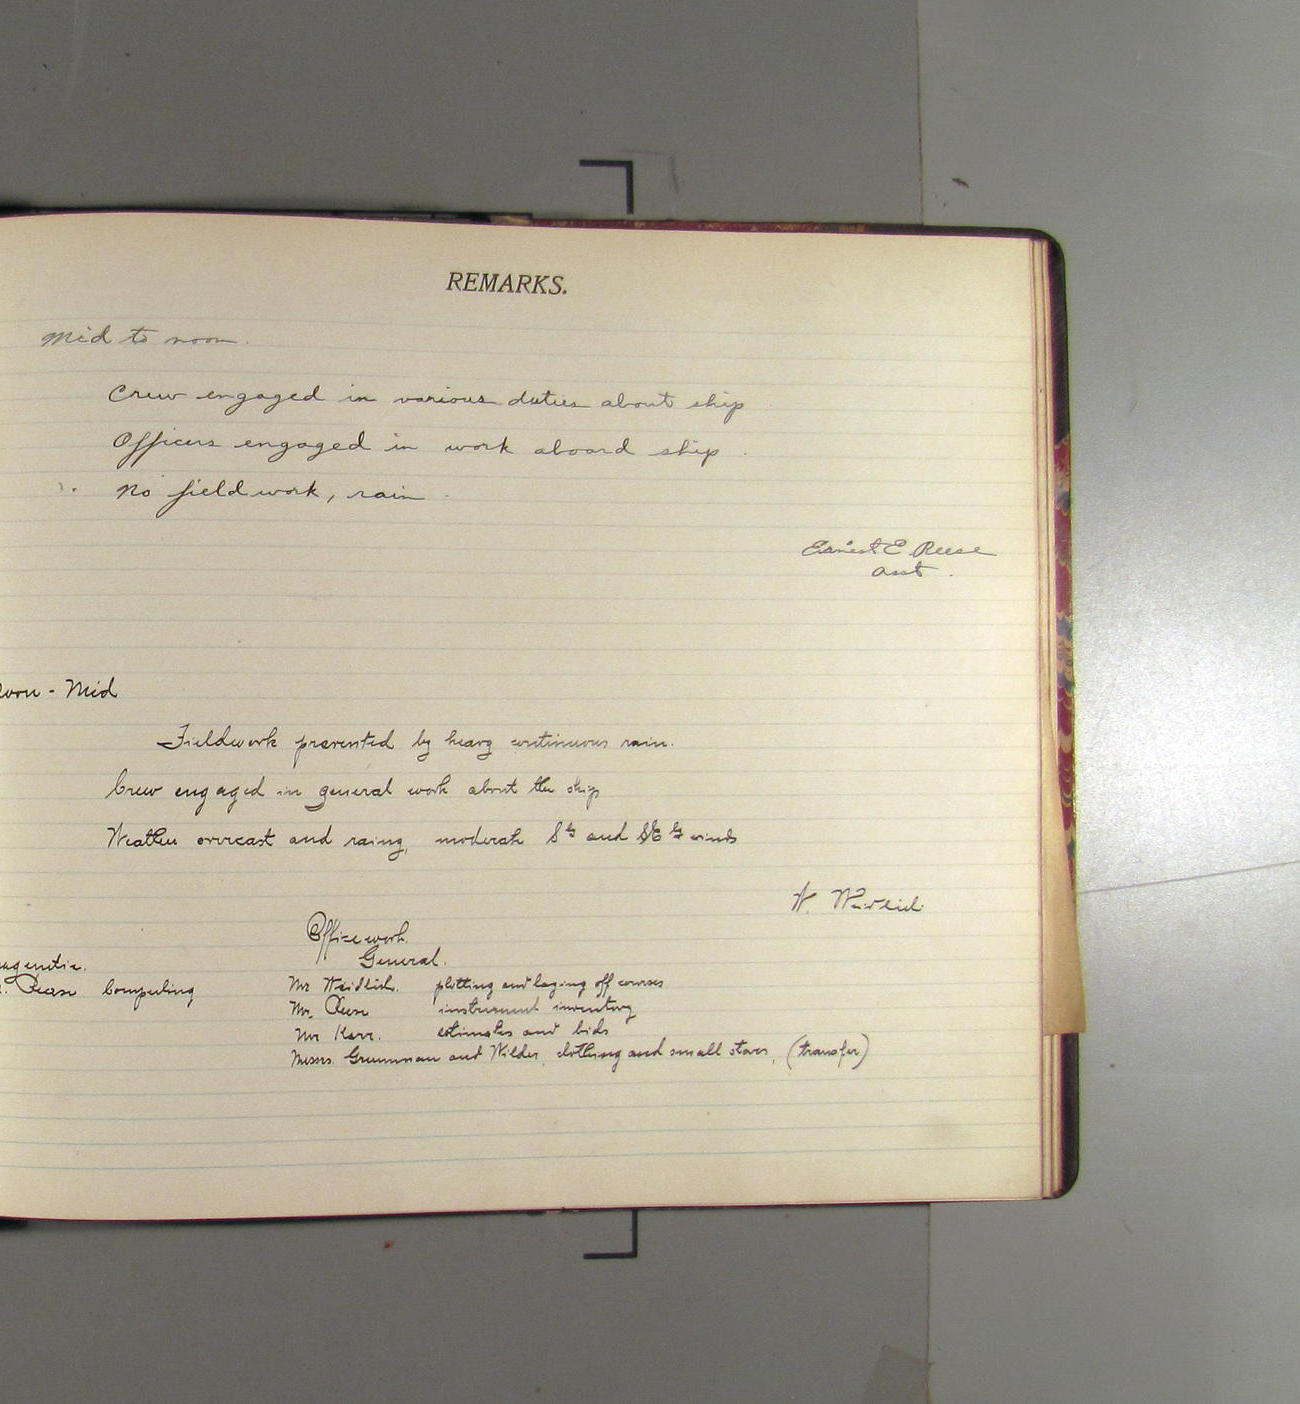 REMARKS.
Mid to noon.
Crew engaged in various duties about ship
Officers engaged in work aboard ship.
No fieldwork, rain.
Ernest E Reese
Asst.
Noon - Mid
Fieldwork prevented by heavy continuous rain.
Crew engaged in general work about the ship
Weather overcast and raing, moderate Sly and SEly winds
Officework.
General.
Computing
Mr Weidlich. plotting and laying off courses
Mr. Reese instrument inventory
Mr Kerr. estimates and bids
Messrs. Grumman and Wilder, clothing and small stores, (transfer)